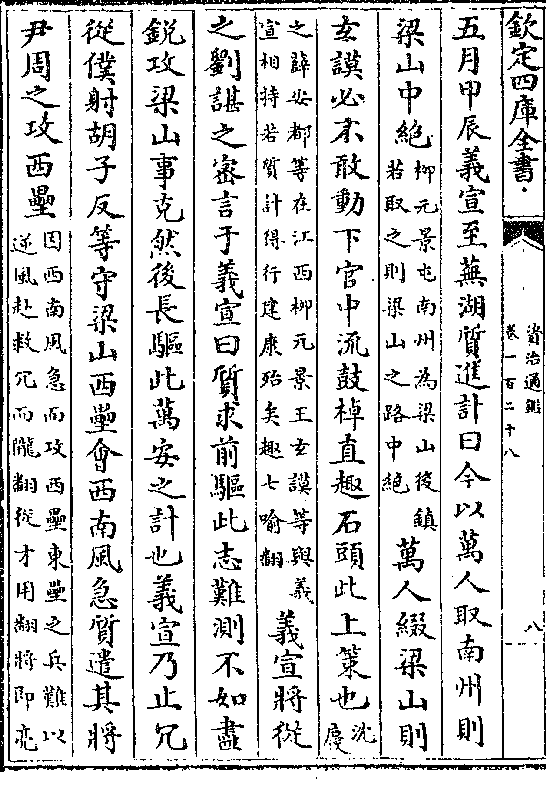 欽定四庫全書
資治通鑑
卷一百二十八
八
五月甲辰義宣至蕪湖質進計曰今以萬人取南州則
梁山中絶
柳元景屯南州為梁山後鎮
若取之則梁山之路中絶
萬人綴梁山則
玄謨必不敢動下官中流鼓棹直趣石頭此上策也
沈慶
之薛安都等在江西柳元景王玄謨等與義
宣相持若質計得行建康殆矣趣七喻翻
義宣將從
之劉諶之密言于義宣曰質求前驅此志難測不如盡
鋭攻梁山事克然後長驅此萬安之計也義宣乃止冗
從僕射胡子反等守梁山西壘會西南風急質遣其將
尹周之攻西壘
因西南風急而攻西壘東壘之兵難以
逆風赴救冗而隴翻從才用翻將即亮